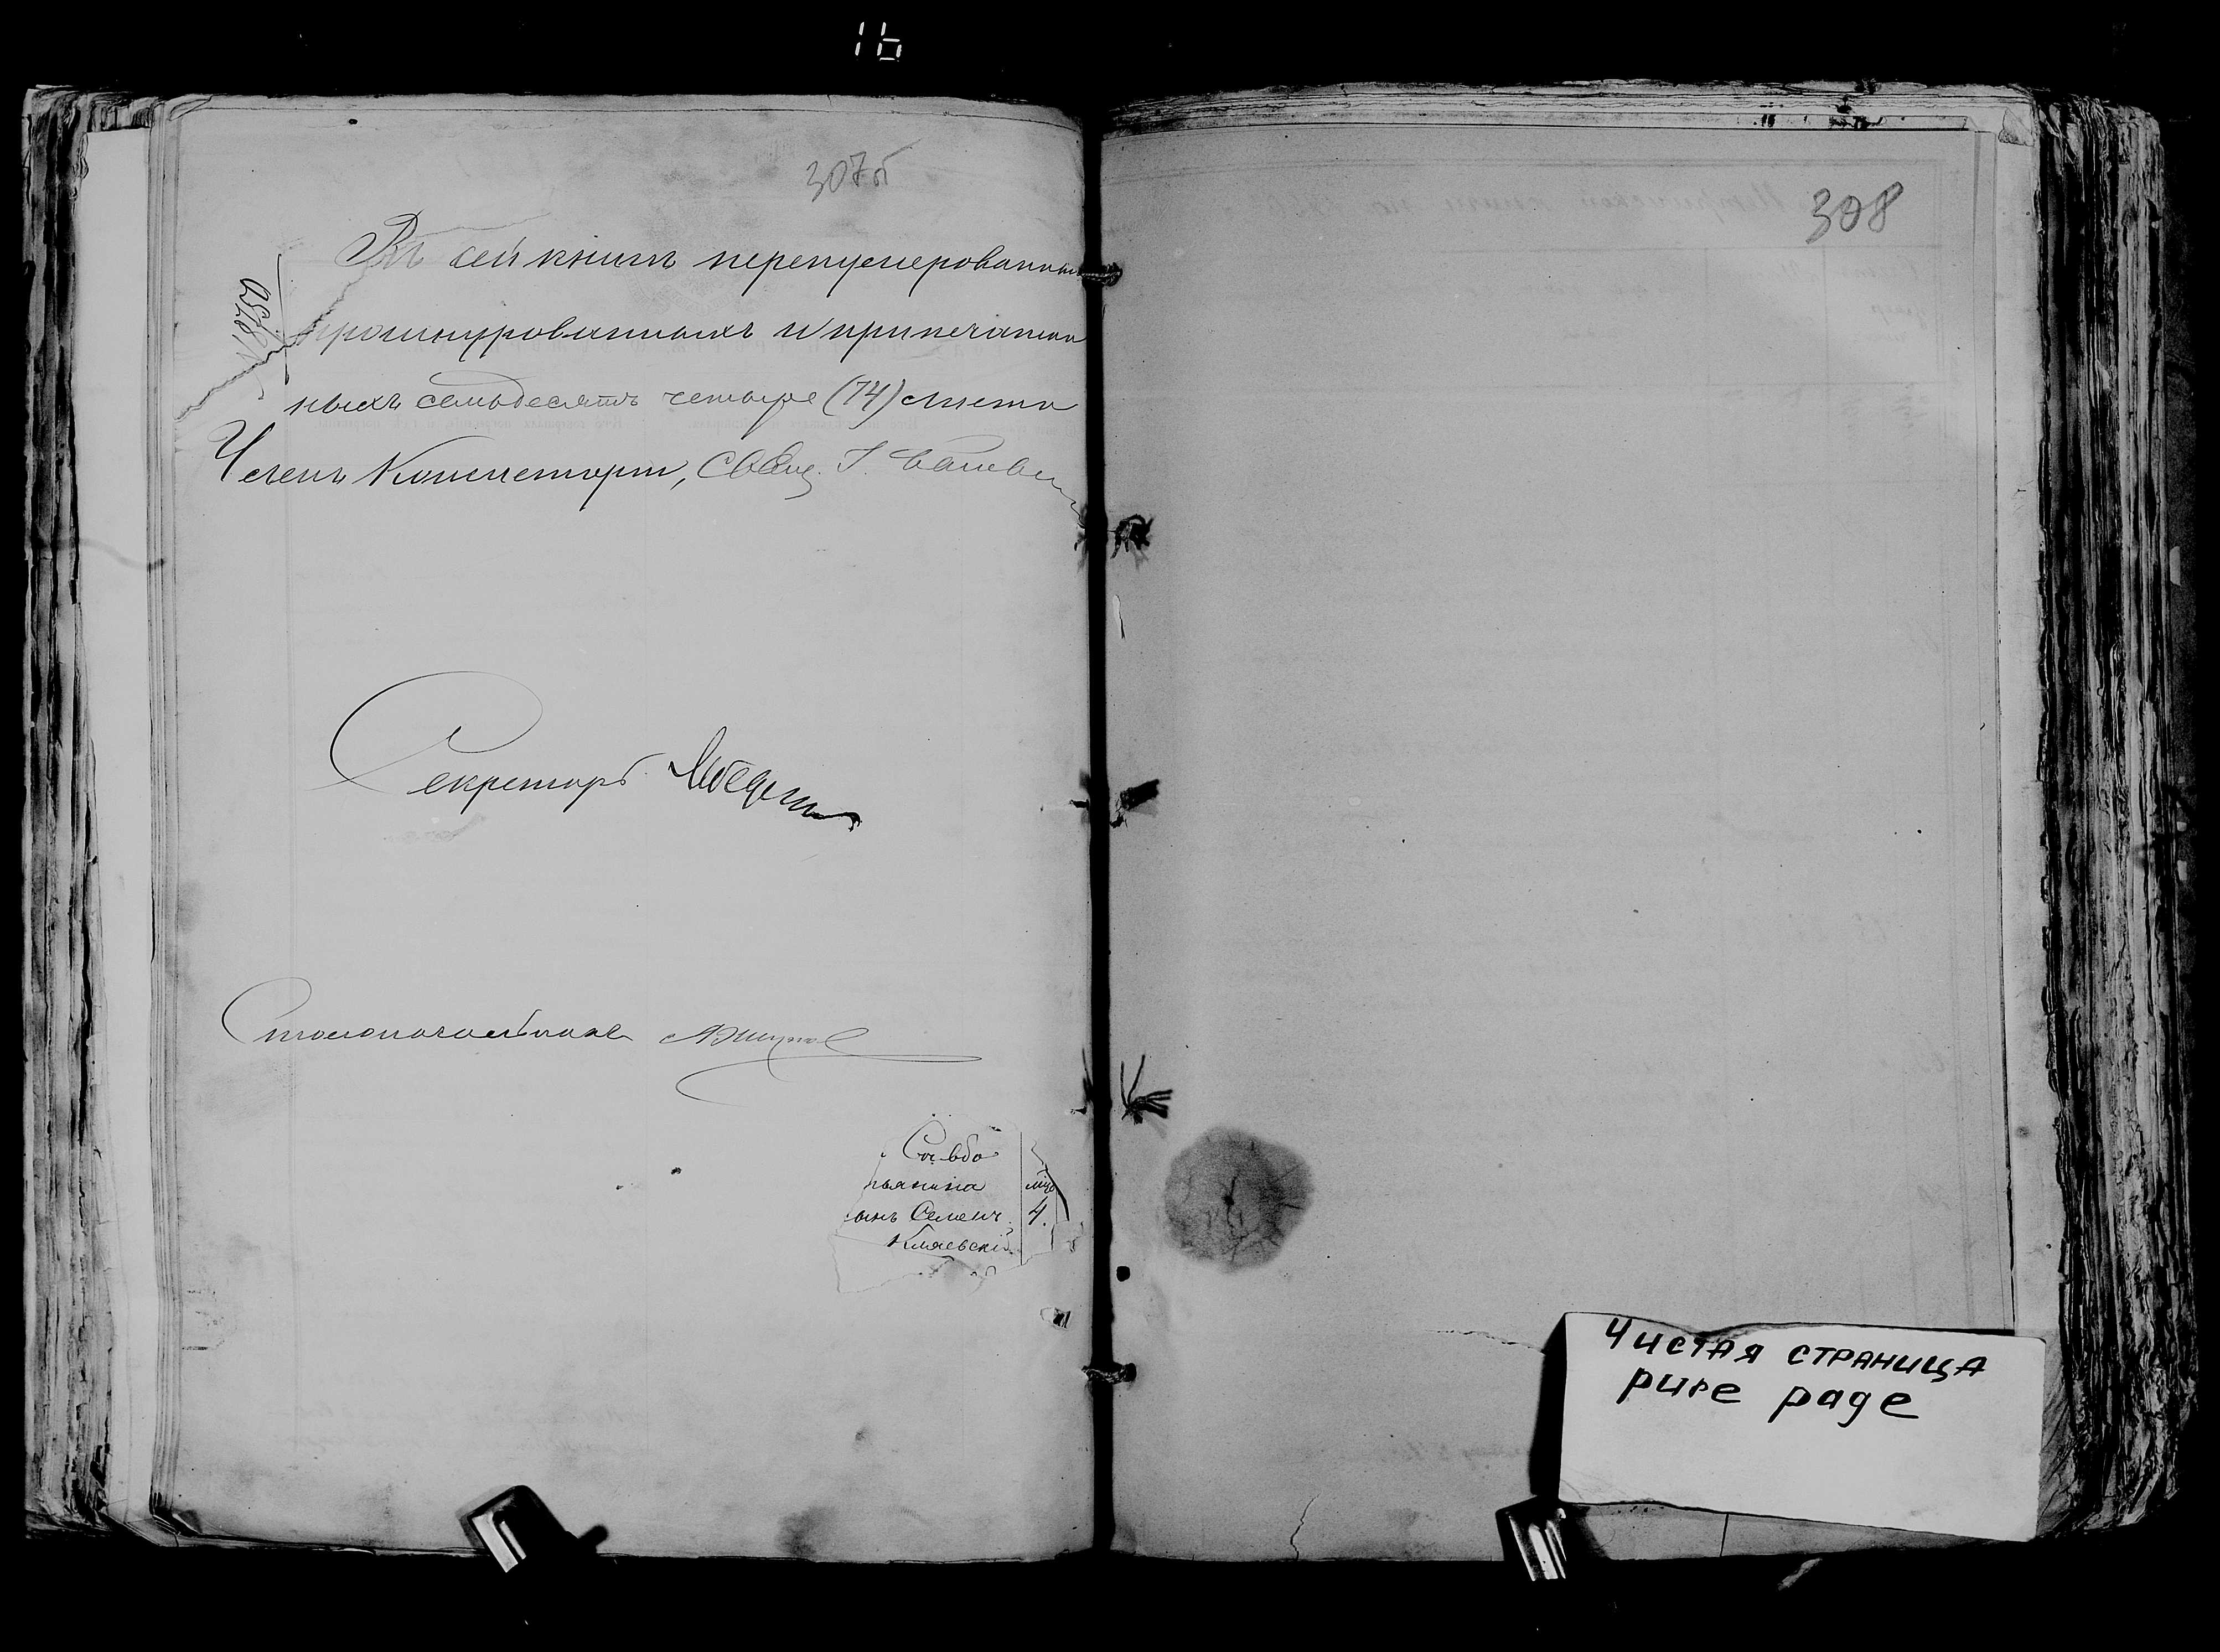 16
307б
Въ сей книгѣ перенумерованныхъ
прошнурованныхъ и припечатан
ныхъ семьдесятъ четыре (74) листа
Членъ Консисторіи, Свящ. I.
Секретарь Лебедевъ
Столоначальникъ
Слобо
ьянина
ынъ Семенъ 4.
Кляевскій
308
Чистая страница
pure page